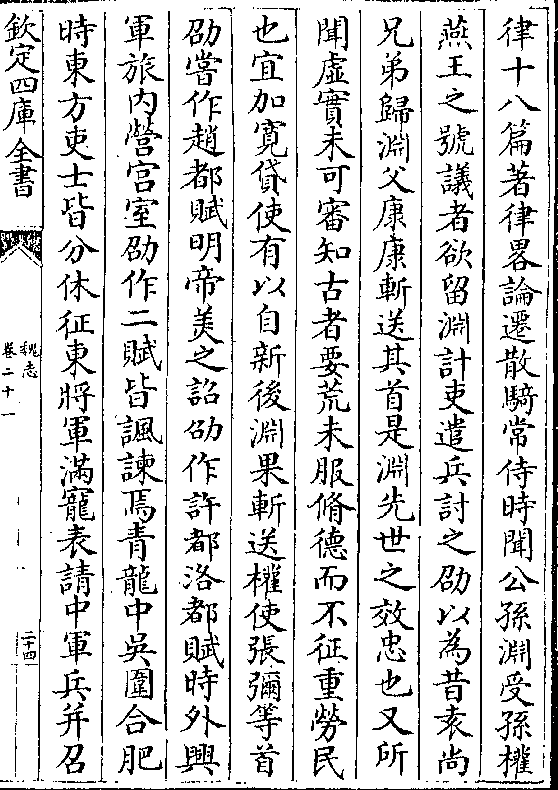 律十八篇著律畧論遷散騎常侍時聞公孫淵受孫權
燕王之號議者欲留淵計吏遣兵討之劭以為昔袁尚
兄弟歸淵父康康斬送其首是淵先世之效忠也又所
聞虛實未可審知古者要荒未服脩德而不征重勞民
也宜加寛貸使有以自新後淵果斬送權使張彌等首
劭嘗作趙都賦明帝美之詔劭作許都洛都賦時外興
軍旅内營宫室劭作二賦皆諷諫焉青龍中吳圍合肥
時東方吏士皆分休征東將軍滿寵表請中軍兵并召
欽定四庫全書
魏志
卷二十一
二十四